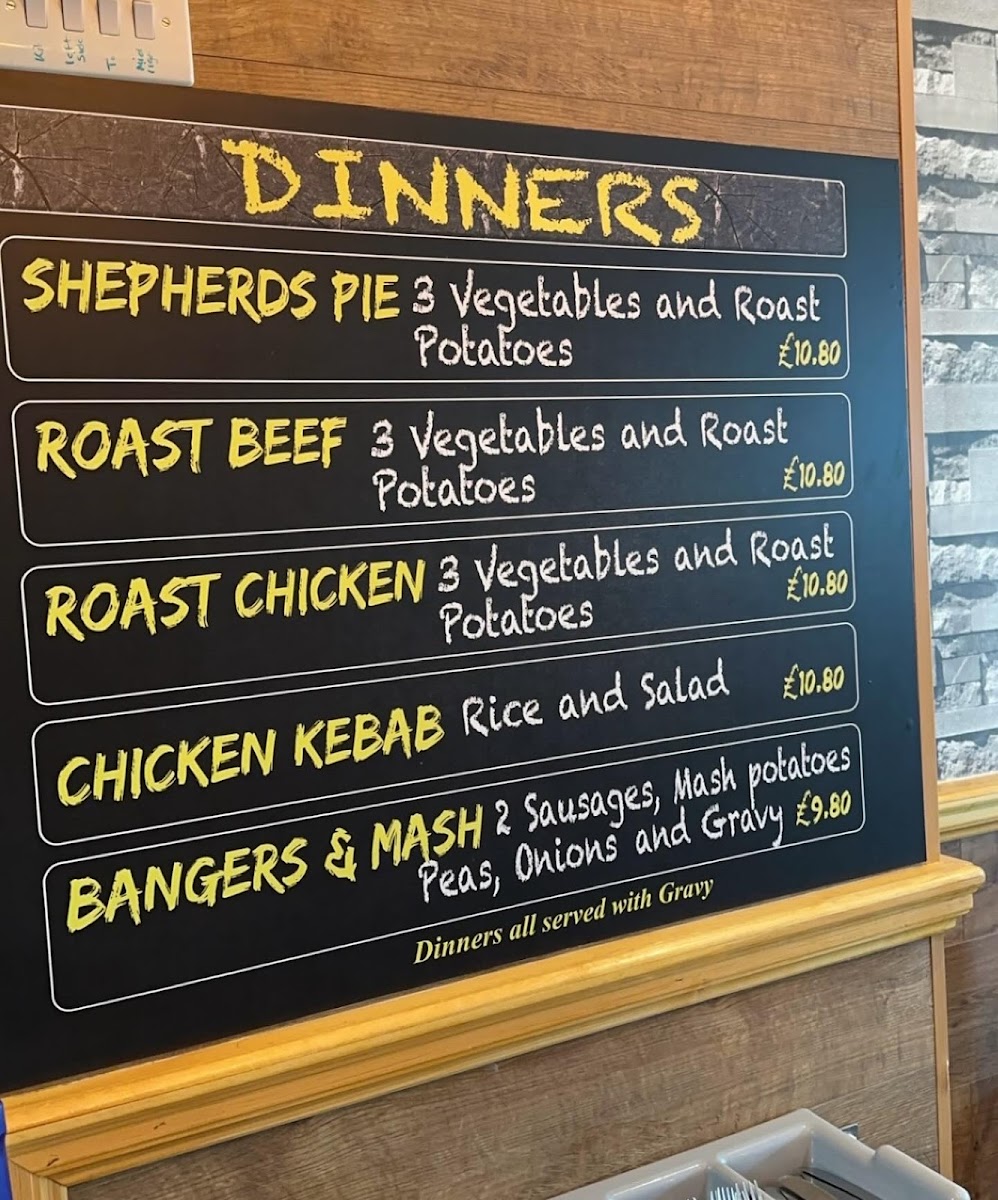 Left Side
DINNERS
SHEPHERDS PIE 3 Vegetables and Roast
Potatoes £10.80
ROAST BEEF 3 Vegetables and Roast
Potatoes £10.80
ROAST CHICKEN 3 Vegetables and Roast
Potatoes £10.80
CHICKEN KEBAB Rice and Salad £10.80
BANGERS & MASH 2 Sausages, Mash potatoes
Peas, Onions and Gravy £9.80
Dinners all served with Gravy